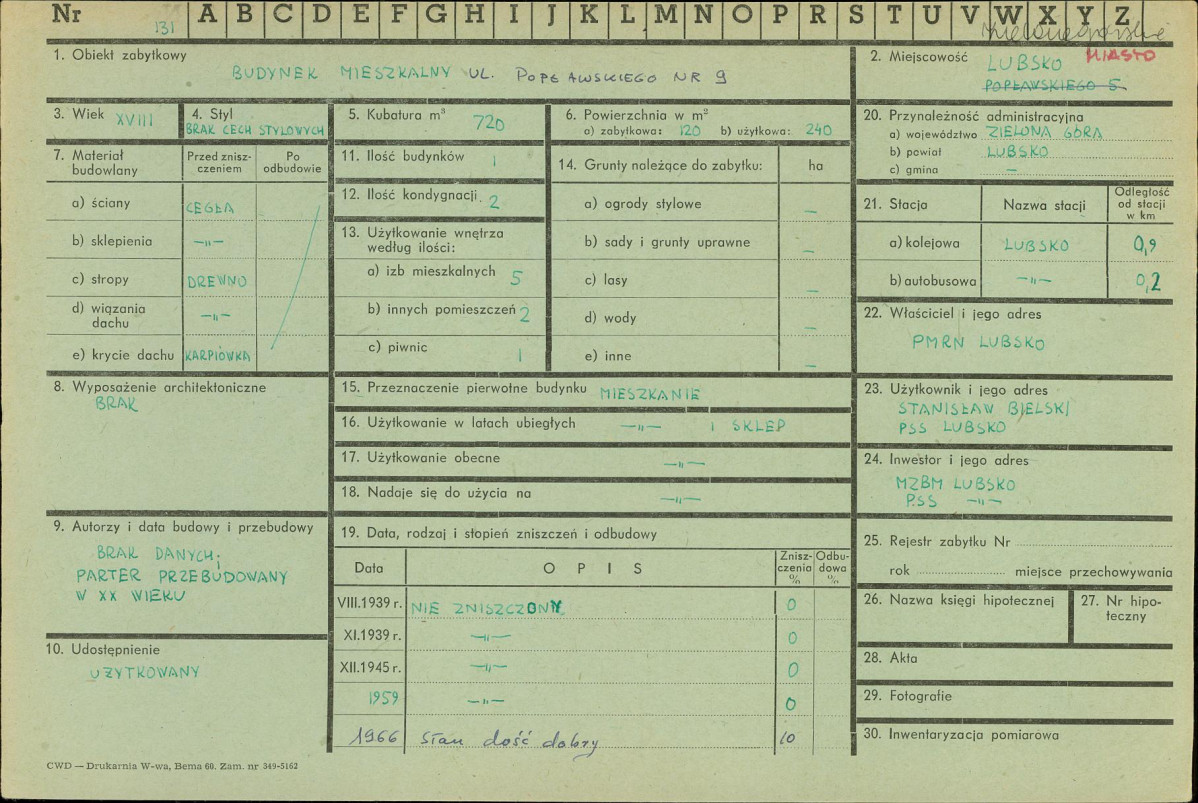 Nr 131 A B C D E F G H I J K L M N O P R S T U V W X Y Z
1. Obiekt zabytkowy
BUDYNEK MIESZKALNY UL. POPŁAWSKIEGO NR 9
2. Miejscowość LUBSKO MIASTO
POPŁAWSKIEGO 5.
3. Wiek XVIII
4. Styl
BRAK CECH STYLOWYCH
5. Kubatura m³ 720
6. Powierzchnia w m²
a) zabytkowa: 120 b) użytkowa: 240
7. Materiał budowlany
Przed zniszczeniem
Po odbudowie
a) ściany CEGŁA
b) sklepienia —„—
c) stropy DREWNO
d) wiązania dachu —„—
e) krycie dachu KARPIÓWKA
8. Wyposażenie architektoniczne
BRAK
9. Autorzy i data budowy i przebudowy
BRAK DANYCH;
PARTER PRZEBUDOWANY
W XX WIEKU
10. Udostępnienie
UŻYTKOWANY
11. Ilość budynków 1
12. Ilość kondygnacji 2
13. Użytkowanie wnętrza
według ilości:
a) izb mieszkalnych 5
b) innych pomieszczeń 2
c) piwnic 1
14. Grunty należące do zabytku: ha
a) ogrody stylowe —
b) sady i grunty uprawne —
c) lasy —
d) wody —
e) inne —
15. Przeznaczenie pierwotne budynku MIESZKANIE
16. Użytkowanie w latach ubiegłych —„— I SKLEP
17. Użytkowanie obecne —„—
18. Nadaje się do użycia na —„—
19. Data, rodzaj i stopień zniszczeń i odbudowy
Data OPIS Zniszczenia % Odbudowa %
VIII.1939 r. NIE ZNISZCZONY 0
XI.1939 r. —„— 0
XII.1945 r. —„— 0
1959 —„— 0
1966 Stan dość dobry 10
20. Przynależność administracyjna
a) województwo ZIELONA GÓRA
b) powiat LUBSKO
c) gmina —
21. Stacja Nazwa stacji Odległość od stacji w km
a) kolejowa LUBSKO 0,9
b) autobusowa —„— 0,2
22. Właściciel i jego adres
PMRN LUBSKO
23. Użytkownik i jego adres
STANISŁAW BIELSKI
PSS LUBSKO
24. Inwestor i jego adres
MZBM LUBSKO
PSS —„—
25. Rejestr zabytku Nr
rok miejsce przechowywania
26. Nazwa księgi hipotecznej
27. Nr hipoteczny
28. Akta
29. Fotografie
30. Inwentaryzacja pomiarowa
CWD — Drukarnia W-wa, Bema 60. Zam. nr 349-5162